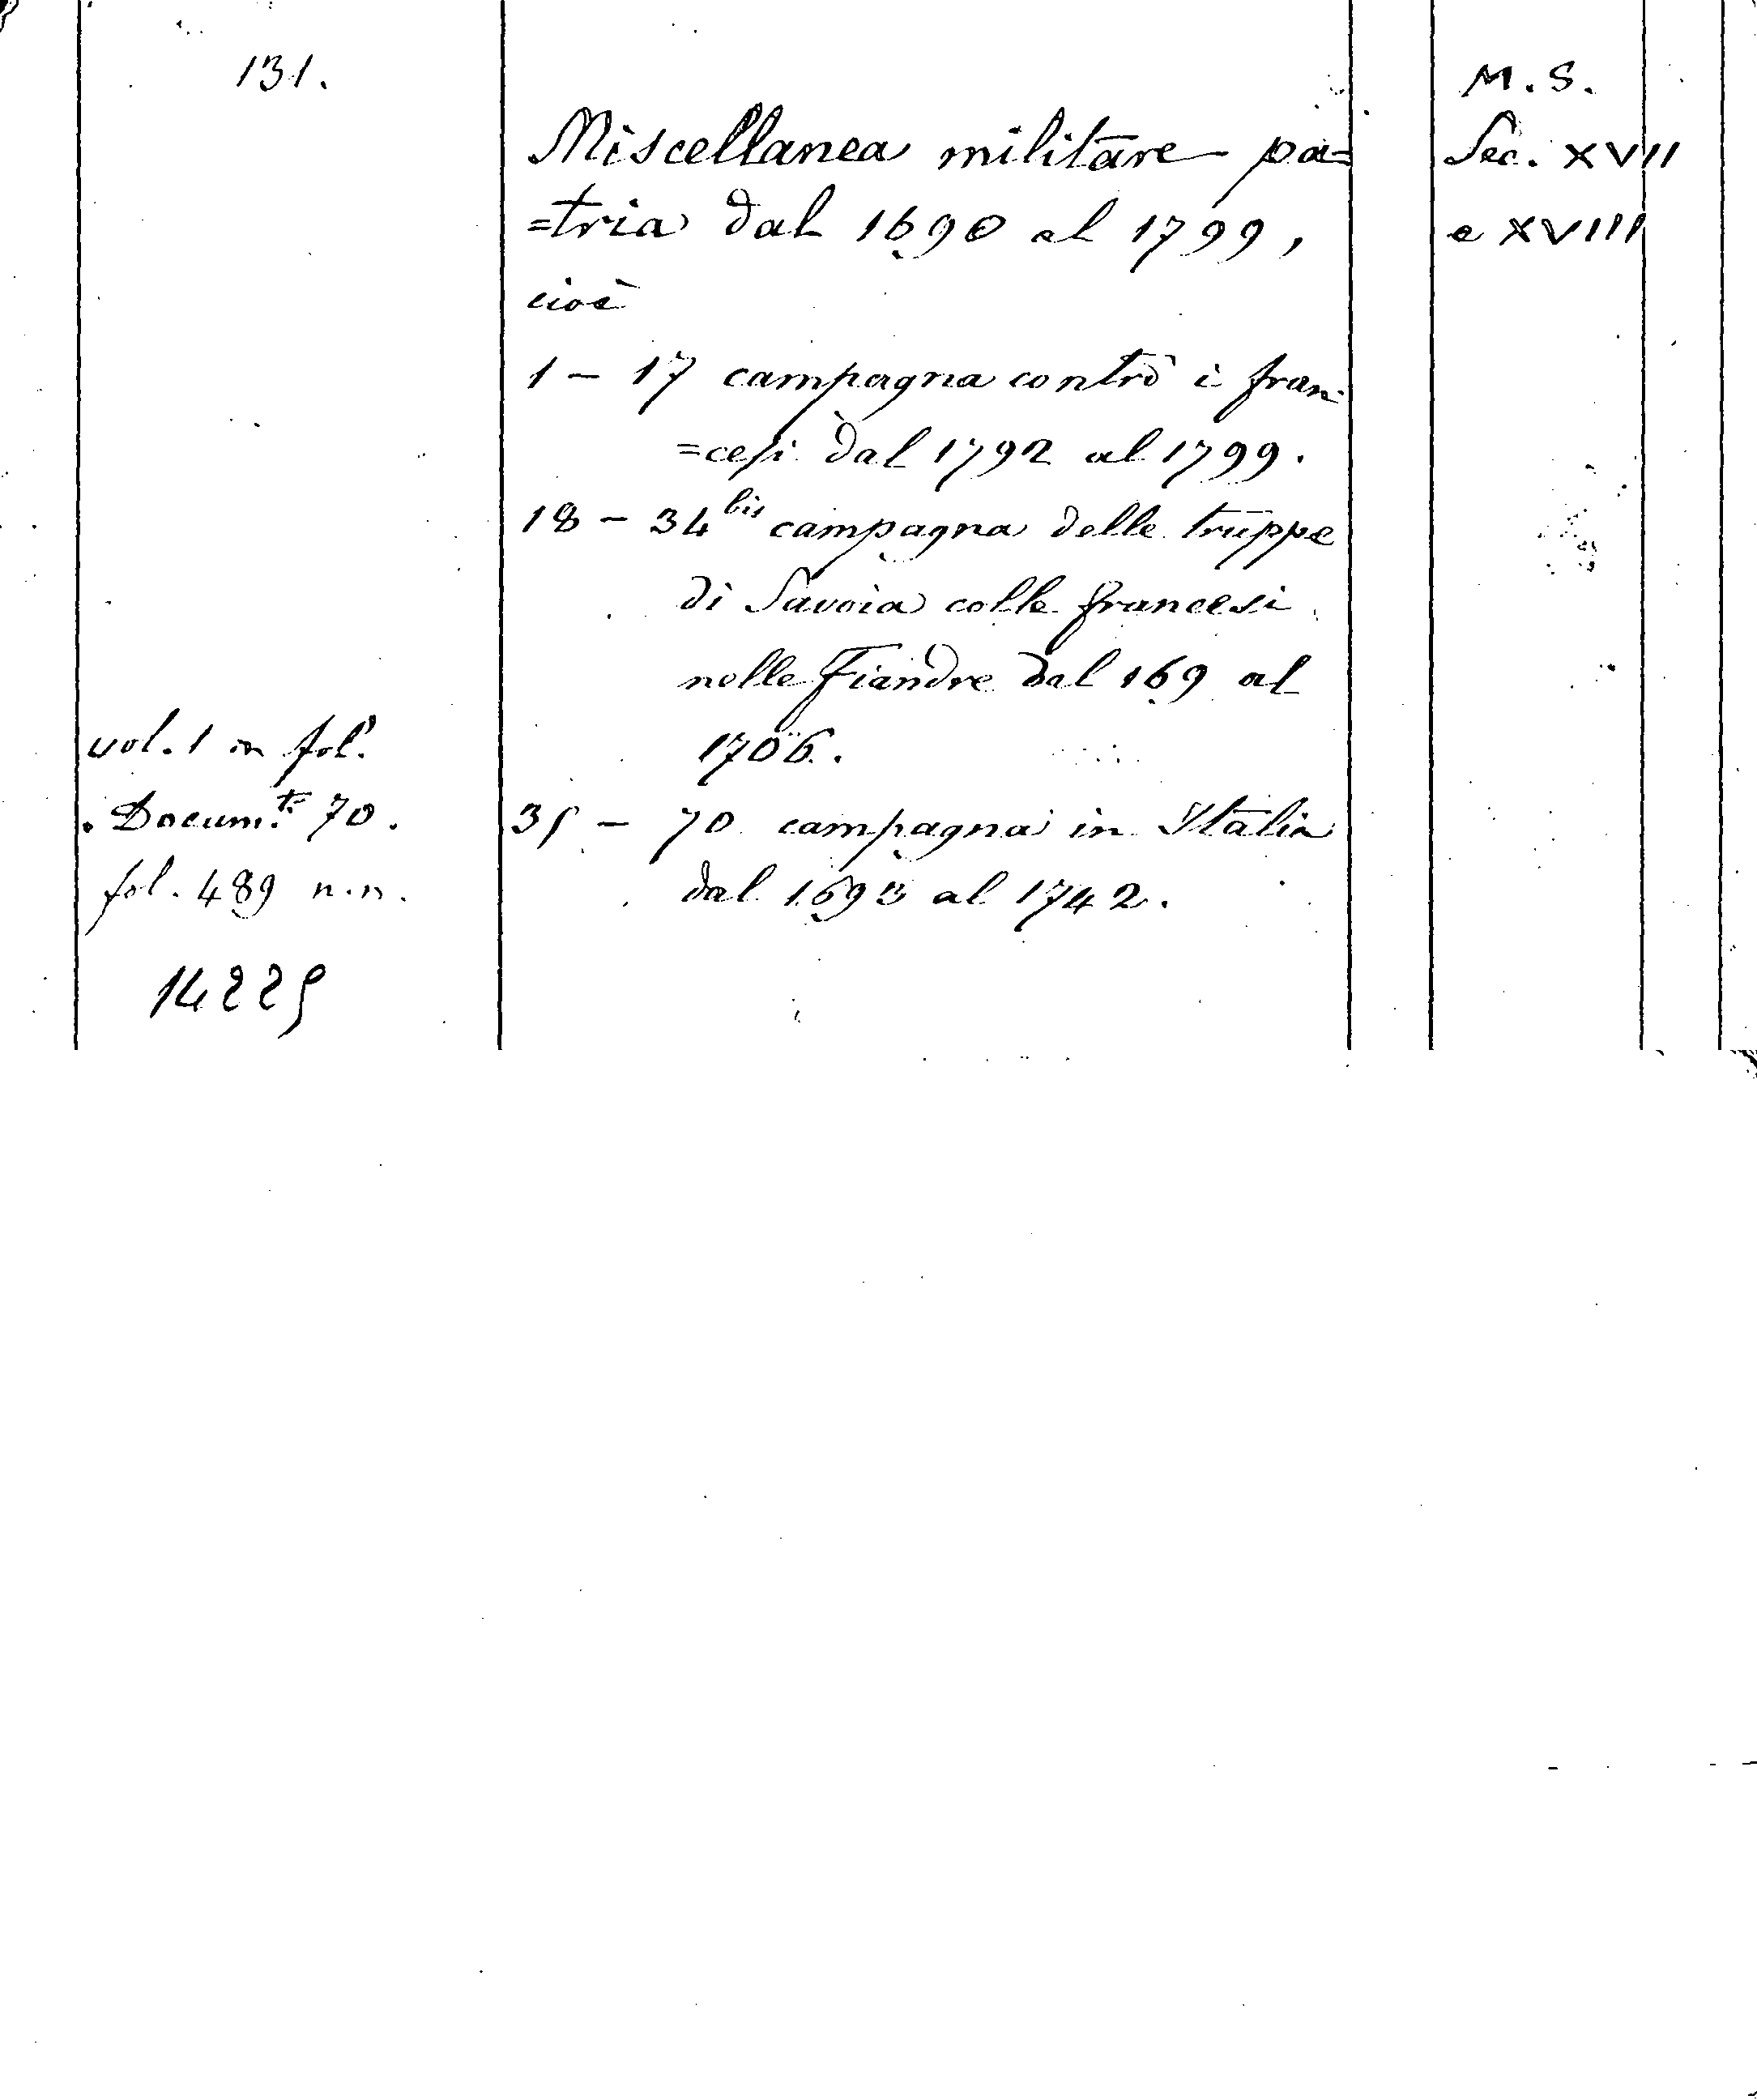 131.
M. S.
Miscellanea militare pa=
Sec. XVII
=tria dal 1690 al 1799,
e XVIII
cioè
1 – 17 campagna contro i fran-
=cesi dal 1792 al 1799.
18 – 34 bis campagna delle truppe
di Savoia colle francesi
nelle Fiandre dal 169 al
1706.
vol. 1 in fol.
Docum.ti 70.
35 – 70 campagna in Italia
fol. 489 n.n.
dal 1693 al 1742.
14225